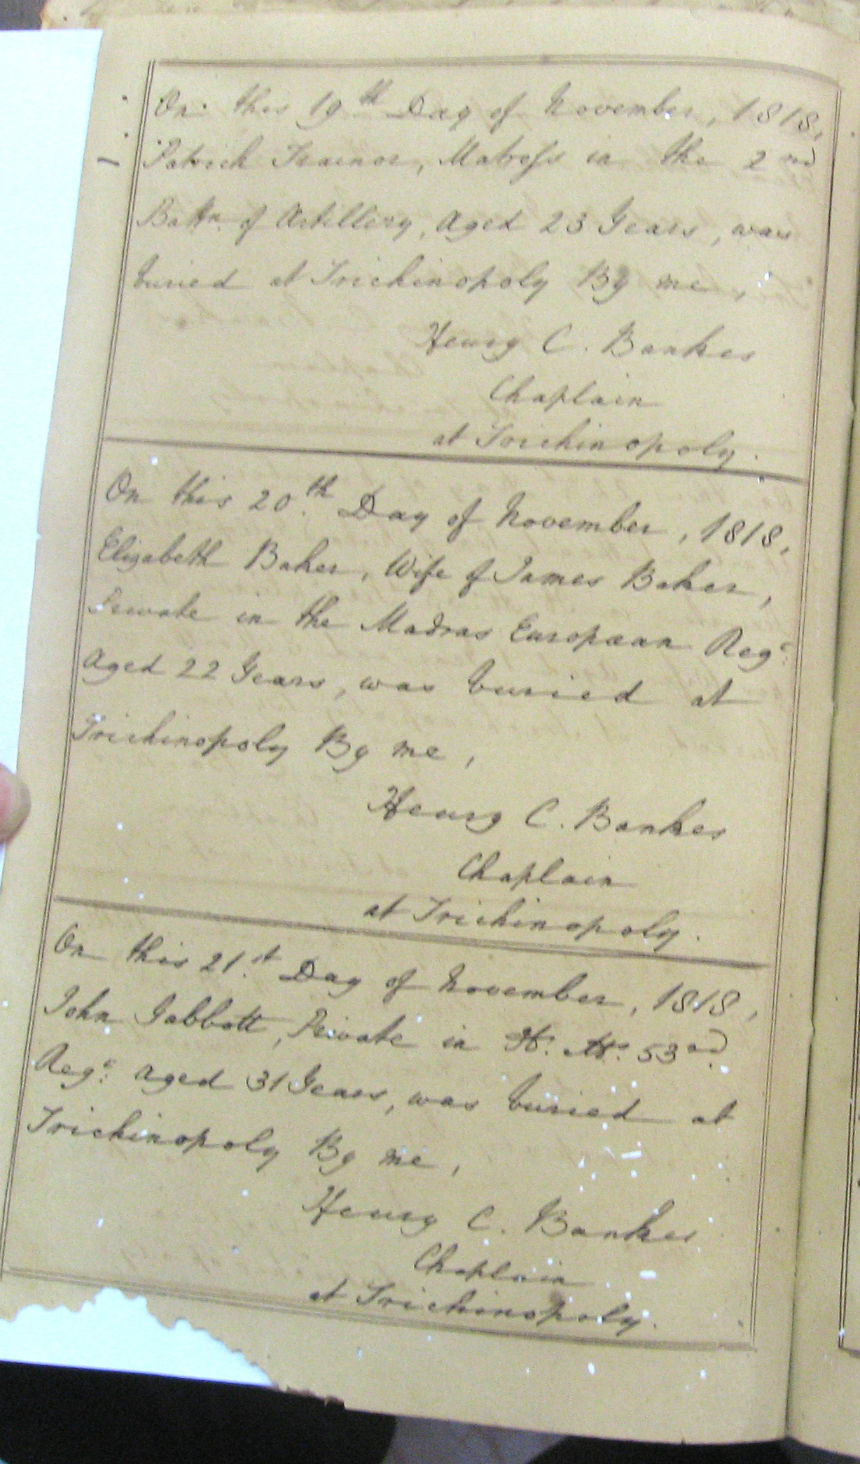 On this 19th Day of November, 1818,
Patrick Trainor, Matross in the 2nd
Battn. of Artillery, Aged 23 Years, was
buried at Trichinopoly By me,
Henry C. Bankes
Chaplain
at Trichinopoly.
On this 20th Day of November, 1818,
Elizabeth Baker, Wife of James Baker,
Private in the Madras European Regt.
Aged 22 Years, was buried at
Trichinopoly By me,
Henry C. Bankes
Chaplain
at Trichinopoly.
On this 21st Day of November, 1818,
John Jabbott, Private in H. M. 53rd
Regt. aged 31 Years, was buried at
Trichinopoly By me,
Henry C. Bankes
Chaplain
at Trichinopoly.